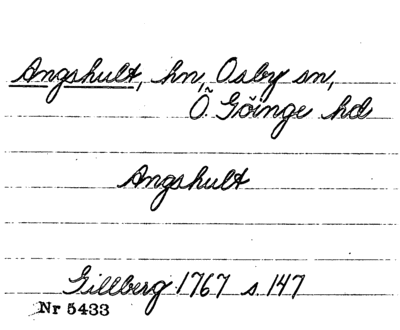 Angshult, hn, Osby sn,
Ö. Göinge hd
Angshult
Gillberg 1767 s. 147
Nr 5433